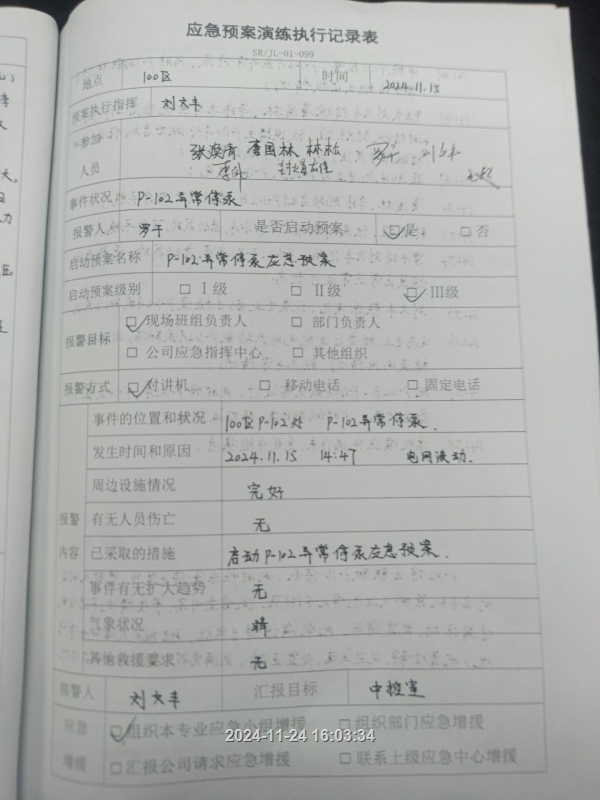 应急预案演练执行记录表
SR/JL-01-099
地点 100区 时间 2024.11.15
预案执行指挥 刘文丰
参加人员 林松 罗干
事件状况 P-102异常停泵
报警人 罗干 是否启动预案 ☑是 □否
启动预案名称 P-102异常停泵应急预案
启动预案级别 □Ⅰ级 □Ⅱ级 ☑Ⅲ级
报警目标 ☑现场班组负责人 □部门负责人
□公司应急指挥中心 □其他组织
报警方式 ☑对讲机 □移动电话 □固定电话
报警内容
事件的位置和状况 100区P-102处 P-102异常停泵.
发生时间和原因 2024.11.15 14:47 电网波动.
周边设施情况 完好
有无人员伤亡 无
已采取的措施 启动P-102异常停泵应急预案.
事件有无扩大趋势 无
气象状况 晴
其他救援要求 无
报警人 刘文丰 汇报目标 中控室
应急增援 ☑组织本专业应急小组增援 □组织部门应急增援
2024-11-24 16:03:34
□汇报公司请求应急增援 □联系上级应急中心增援